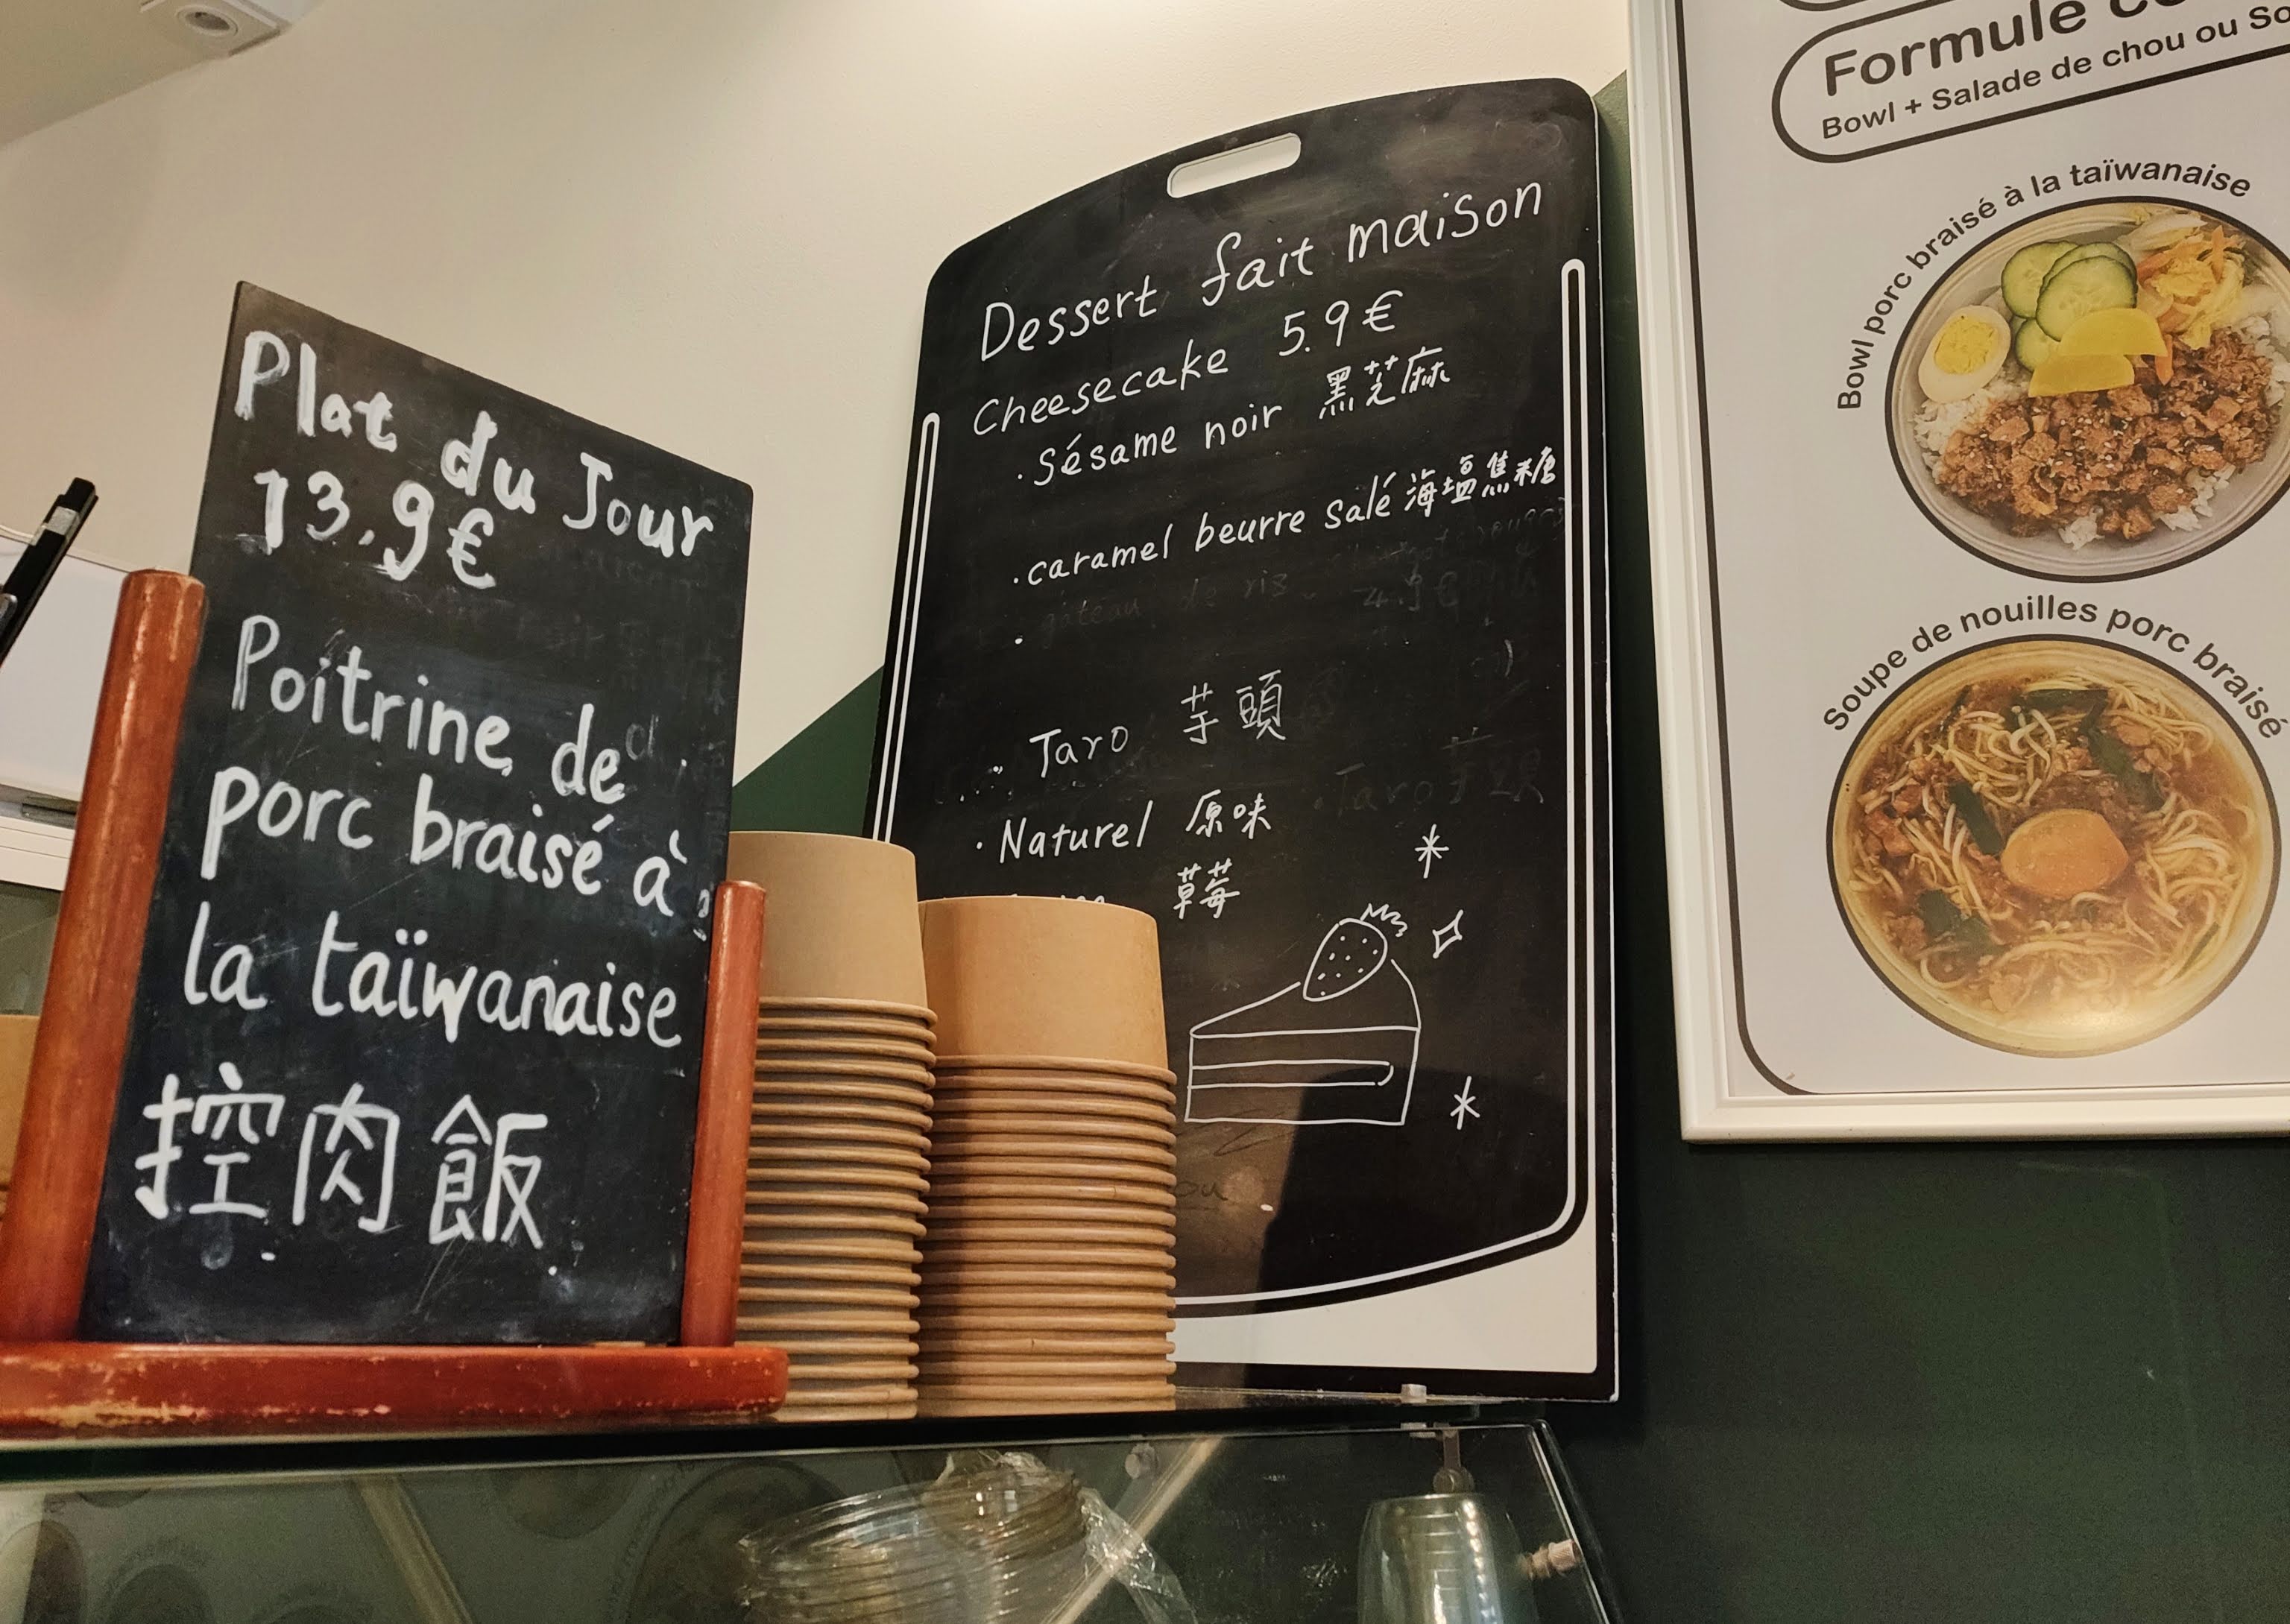 Plat du Jour
13.9€
Poitrine de
porc braisé à
la taïwanaise
控肉飯
Dessert fait maison
Cheesecake 5.9€
·Sésame noir 黑芝麻
·caramel beurre salé 海塩焦糖
gâteau de riz 4.9€
· Taro 芋頭
·Taro 芋頭
·Naturel 原味
草莓
Formule
Bowl + Salade de chou ou
Bowl porc braisé à la taïwanaise
Soupe de nouilles porc braisé